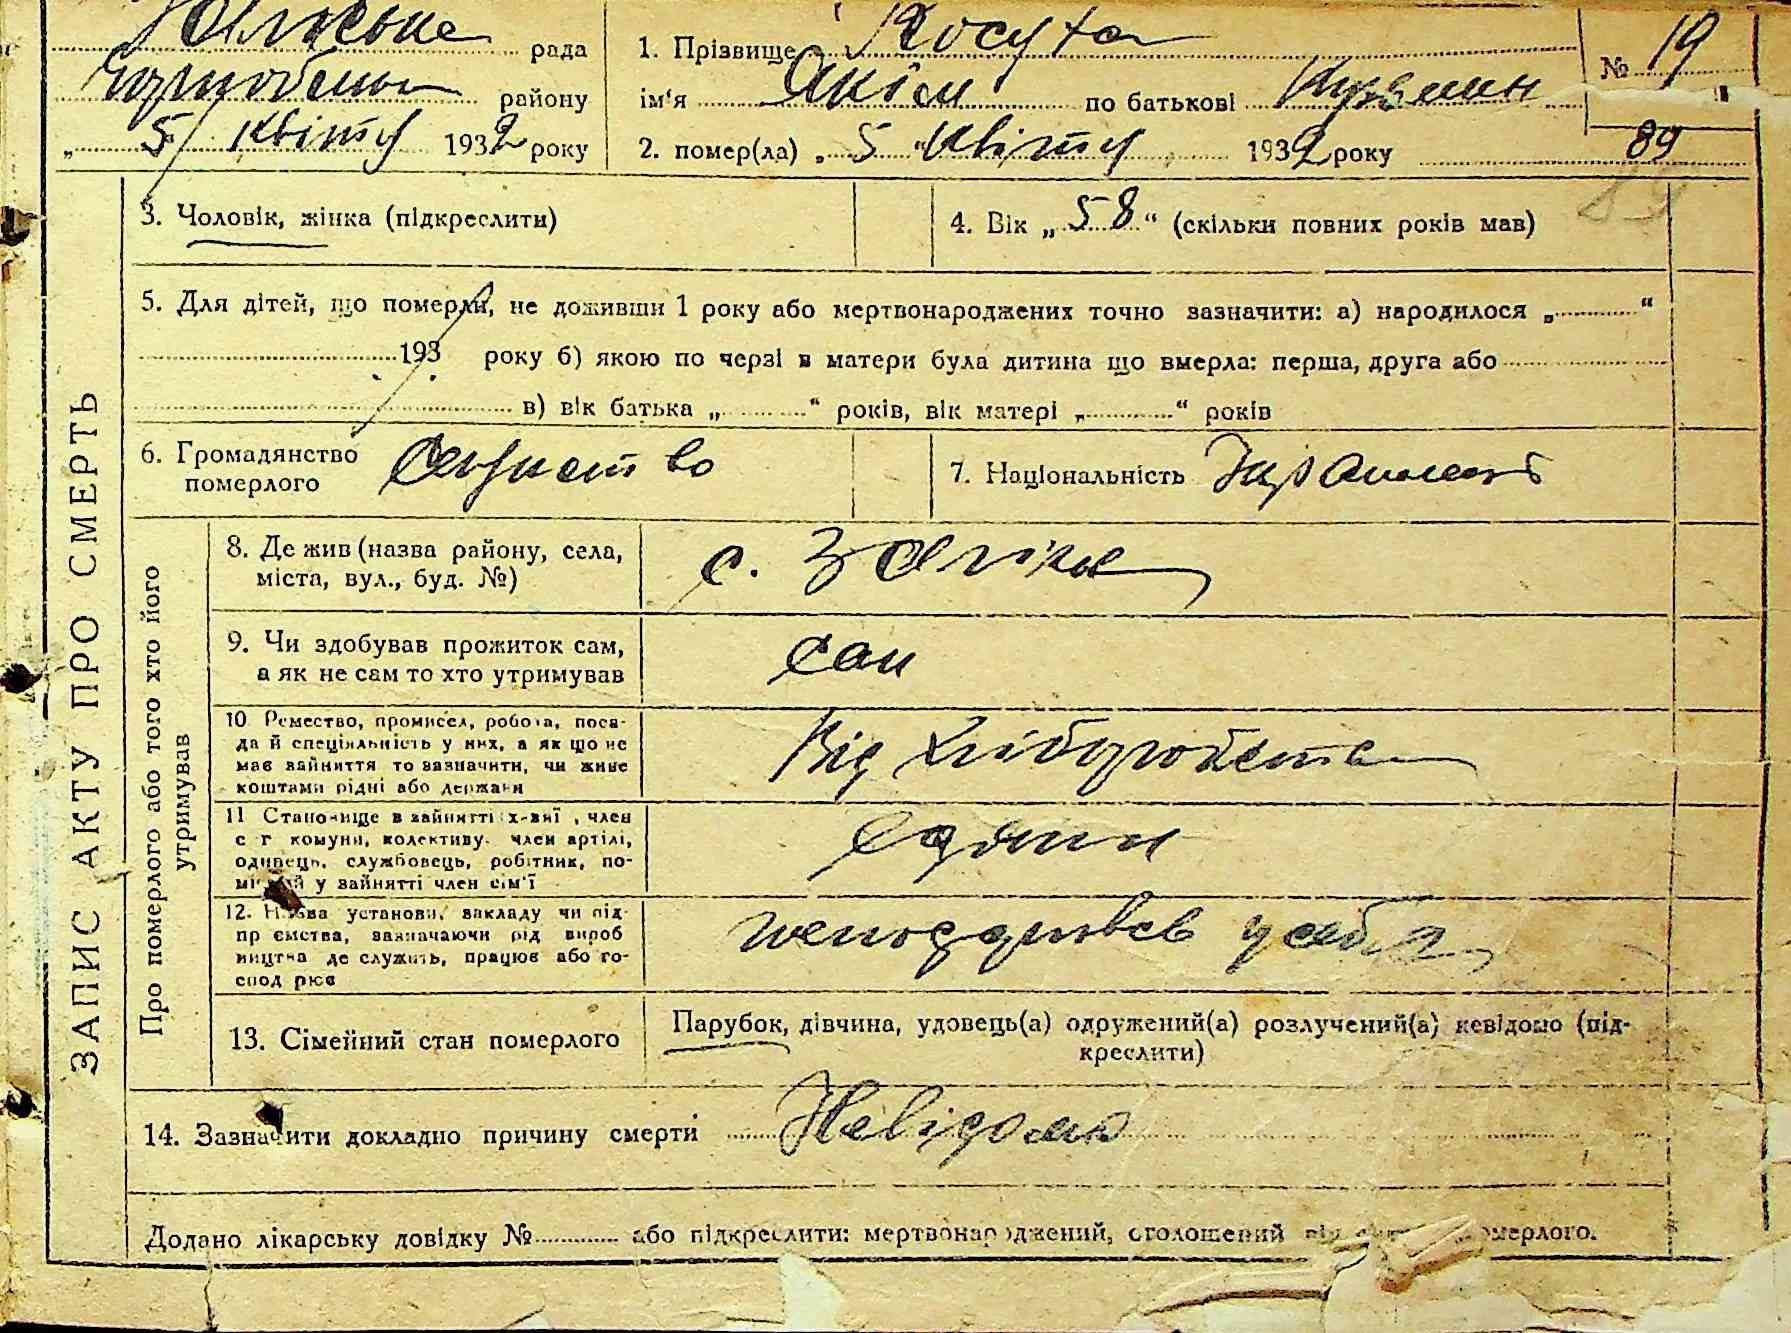 рада
району
„ 5 квітня 1932 року
1. Прізвище Косута
ім'я Якім по батькові Кузьмин
2. помер(ла) „ 5 " квітня 1932 року
№ 19
89
ЗАПИС АКТУ ПРО СМЕРТЬ
3. Чоловік, жінка (підкреслити)
4. Вік „ 58 " (скільки повних років мав)
5. Для дітей, що померли, не доживши 1 року або мертвонароджених точно зазначити: а) народилося „ "
193 року б) якою по черзі в матери була дитина що вмерла: перша, друга або
в) вік батька „ " років, вік матері „ " років
6. Громадянство
померлого
7. Національність
Про померлого або того хто його
утримував
8. Де жив (назва району, села,
міста, вул., буд. №)
с.
9. Чи здобував прожиток сам,
а як не сам то хто утримував
сам
10 Ремество, промисел, робота, поса-
да й спеціяльність у них, а як що не
має зайняття то зазначити, чи живе
коштами рідні або держави
Від хліборобства
11 Становище в зайнятті член
с г комуни, колективу член артілі,
одинець, службовець, робітник, по-
у зайнятті член сім'ї
12. Назва установи, закладу чи під-
пр ємства, зазначаючи рід вироб
ництва де служить, працює або го-
спод рює
у себе
13. Сімейний стан померлого
Парубок, дівчина, удовець(а) одружений(а) розлучений(а) невідомо (під-
креслити)
14. Зазначити докладно причину смерти Невідома
Додано лікарську довідку № або підкреслити: мертвонароджений, оголошений померлого.